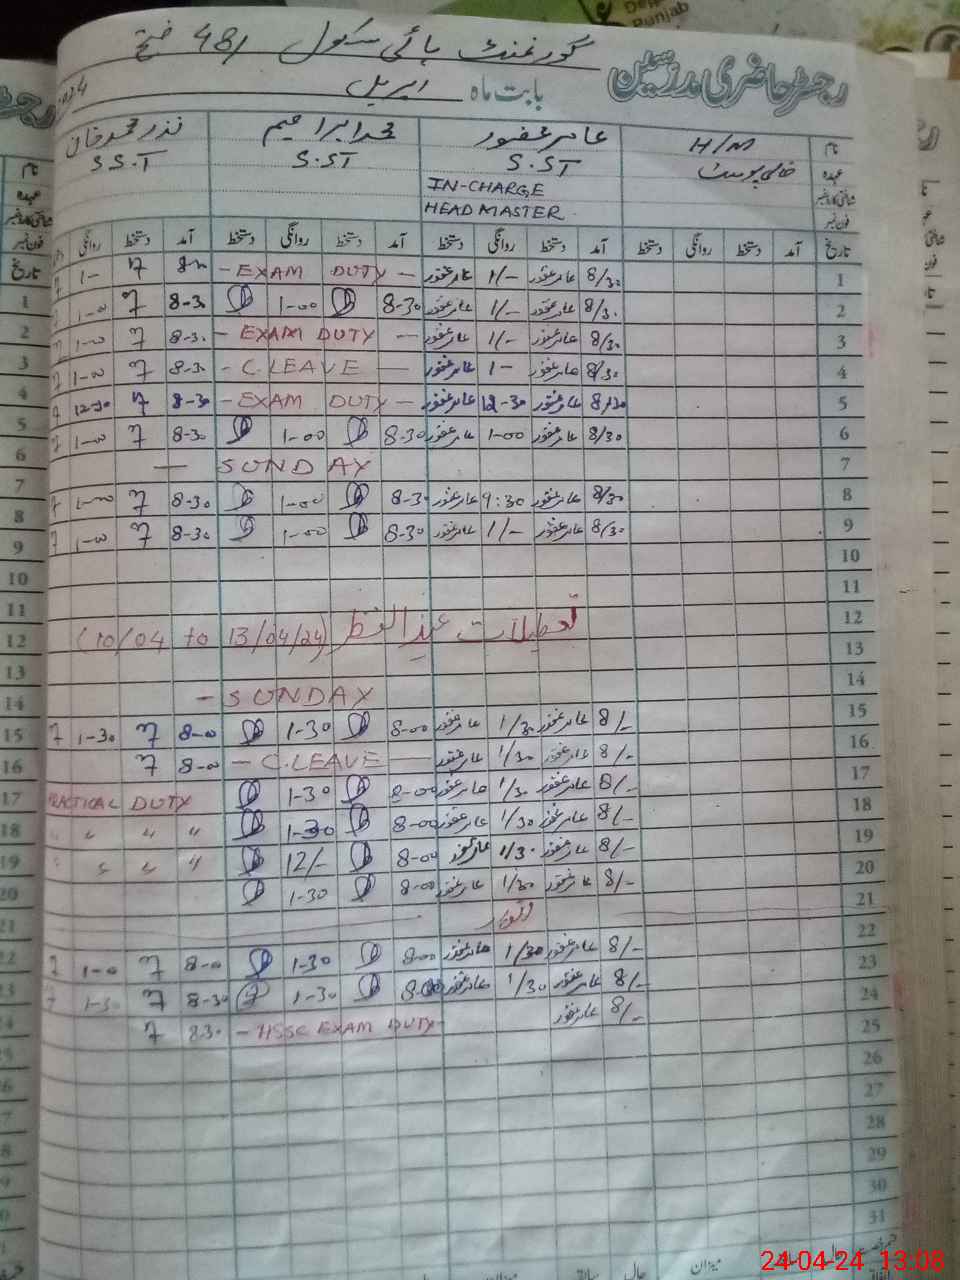 Punjab
رجسٹر حاضری مدرسین گورنمنٹ ہائی سکول 481 ج ب
بابت ماہ اپریل 2024
نام H/M عامر غفور محمد ابراہیم نذر محمد خان
عہدہ خالی پوسٹ S.ST S.ST S.S.T
شناختی کارڈ نمبر IN-CHARGE
فون نمبر HEAD MASTER
تاریخ آمد دستخط روانگی دستخط آمد دستخط روانگی دستخط آمد دستخط روانگی دستخط آمد دستخط روانگی
1 8/30 عامر غفور 1/- عامر غفور - EXAM DUTY - 1-
2 8/30 عامر غفور 1/- عامر غفور 8-30 1-00 8-30 1-00
3 8/30 عامر غفور 1/- عامر غفور - EXAM DUTY - 8-30 1-00
4 8/30 عامر غفور 1- عامر غفور - C.LEAVE - 8-30 1-00
5 8/30 عامر غفور 12-30 عامر غفور - EXAM DUTY - 8-30 12-30
6 8/30 عامر غفور 1-00 عامر غفور 8-30 1-00 8-30 1-00
7 - SUNDAY
8 8/30 عامر غفور 9:30 عامر غفور 8-30 1-00 8-30 1-00
9 8/30 عامر غفور 1/- عامر غفور 8-30 1-00 8-30 1-00
10
11
12 تعطیلات عید الفطر (10/04 to 13/04/24)
13
14 - SUNDAY
15 8/- عامر غفور 1/30 عامر غفور 8-00 1-30 8-00 1-30
16 8/- عامر غفور 1/30 عامر غفور - C.LEAVE - 8-00
17 8/- عامر غفور 1/30 عامر غفور 8-00 1-30 PRACTICAL DUTY
18 8/- عامر غفور 1/30 عامر غفور 8-00 1-30 " " " "
19 8/- عامر غفور 1/30 عامر غفور 8-00 12/- " " " "
20 8/- عامر غفور 1/30 عامر غفور 8-00 1-30
21 اتوار
22 8/- عامر غفور 1/30 عامر غفور 8-00 1-30 8-00 1-0
23 8/- عامر غفور 1/30 عامر غفور 8-00 1-30 8-30 1-30
24 8/- عامر غفور - HSSC EXAM DUTY - 830
25
26
27
28
29
30
31
میزان حال سابقہ میزان حال
24-04-24 13:08